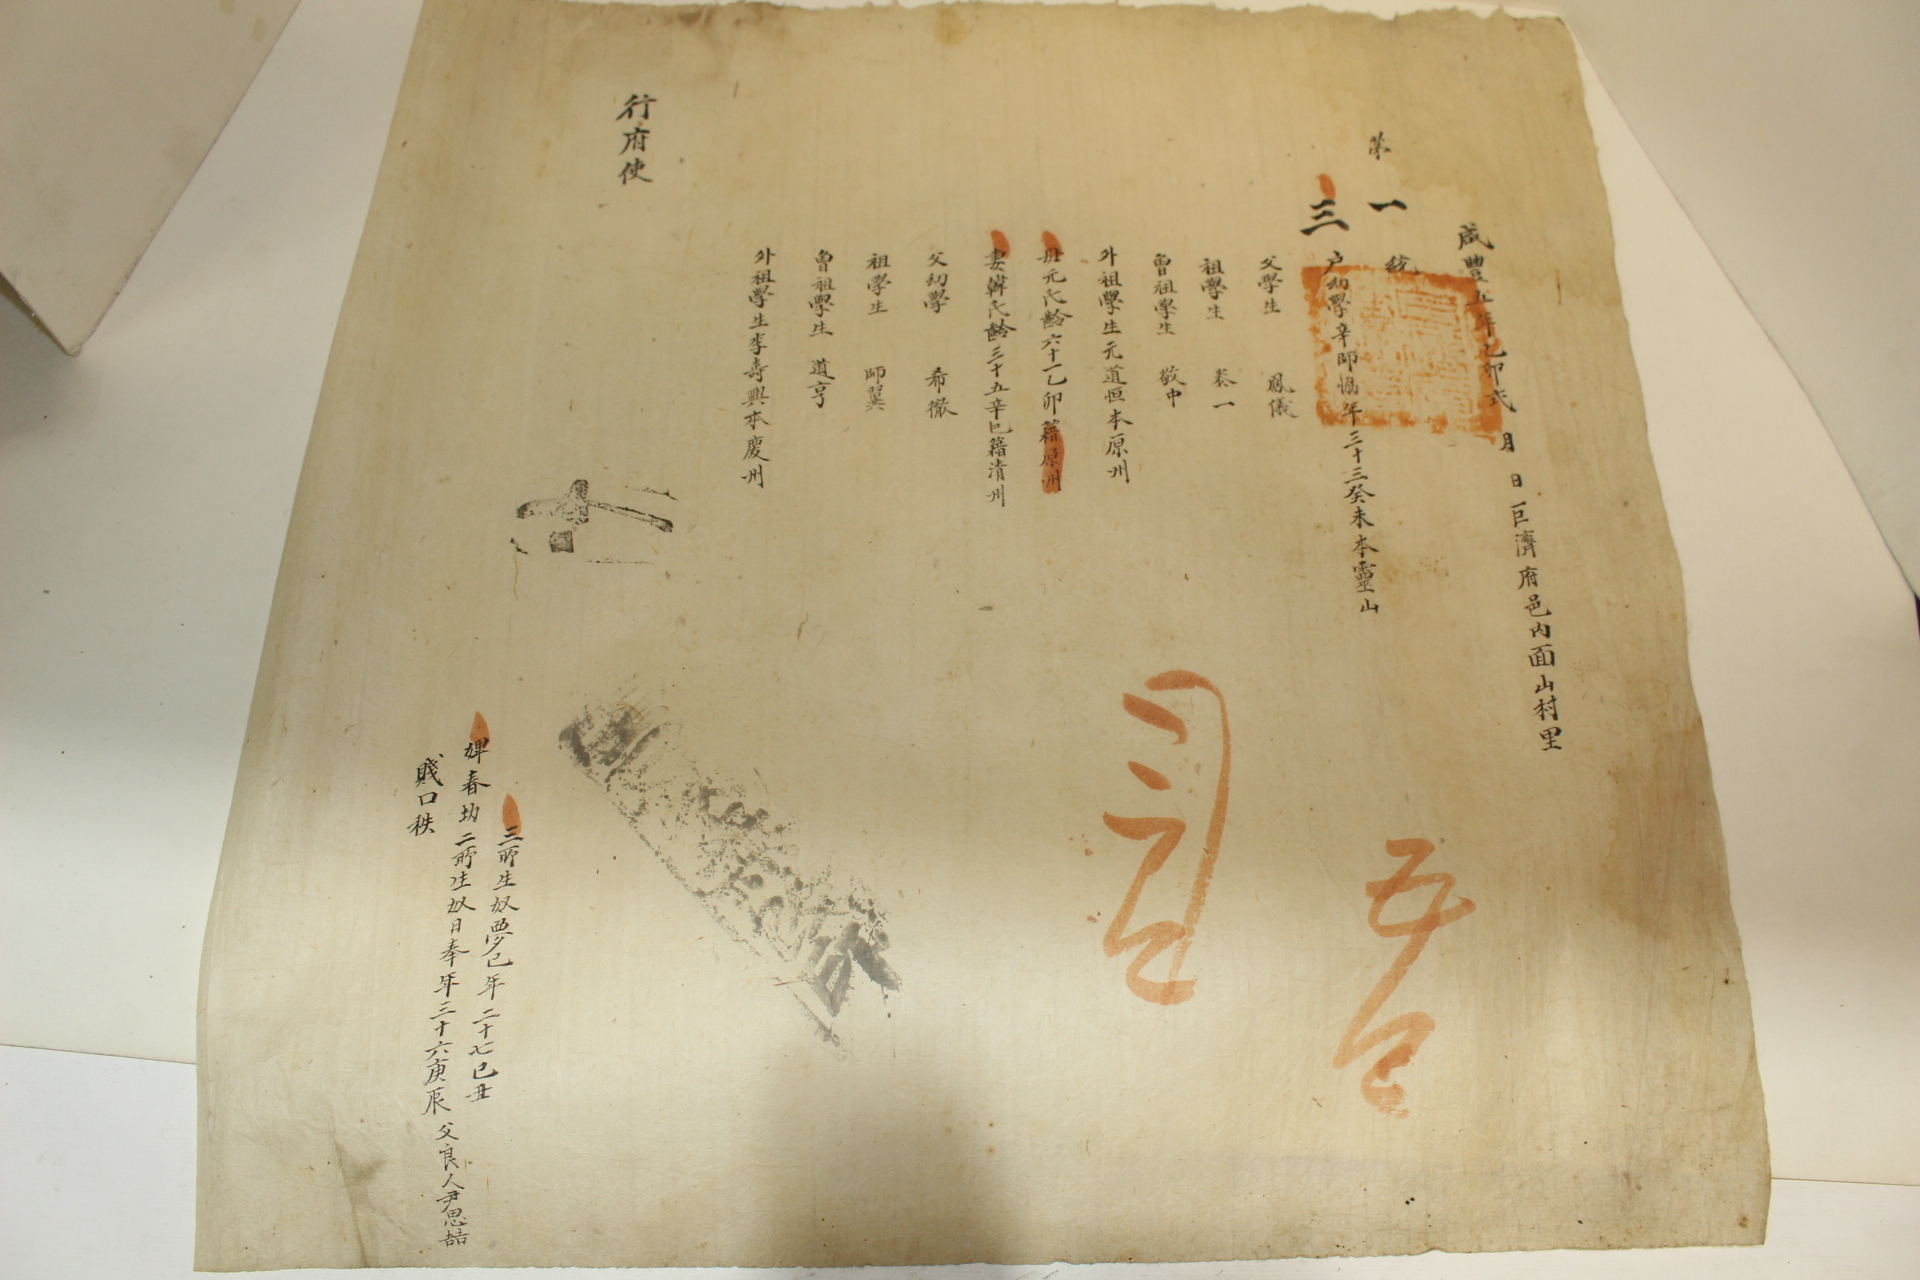 咸豊五年乙卯式 月 日巨濟府邑內面山村里
第一統
三戶幼學辛師 年三十三癸未本靈山
父學生 鳳儀
祖學生 泰一
曾祖學生 敬中
外祖學生元道恒本原州
母元氏齡六十一乙卯籍原州
妻韓氏齡三十五辛巳籍淸州
父幼學 希徹
祖學生 師翼
曾祖學生 道亨
外祖學生李壽興本慶州
行府使
三所生奴夢已年二十七己丑
婢春 二所生奴日奉年三十六庚辰父良人尹思喆
賤口秩